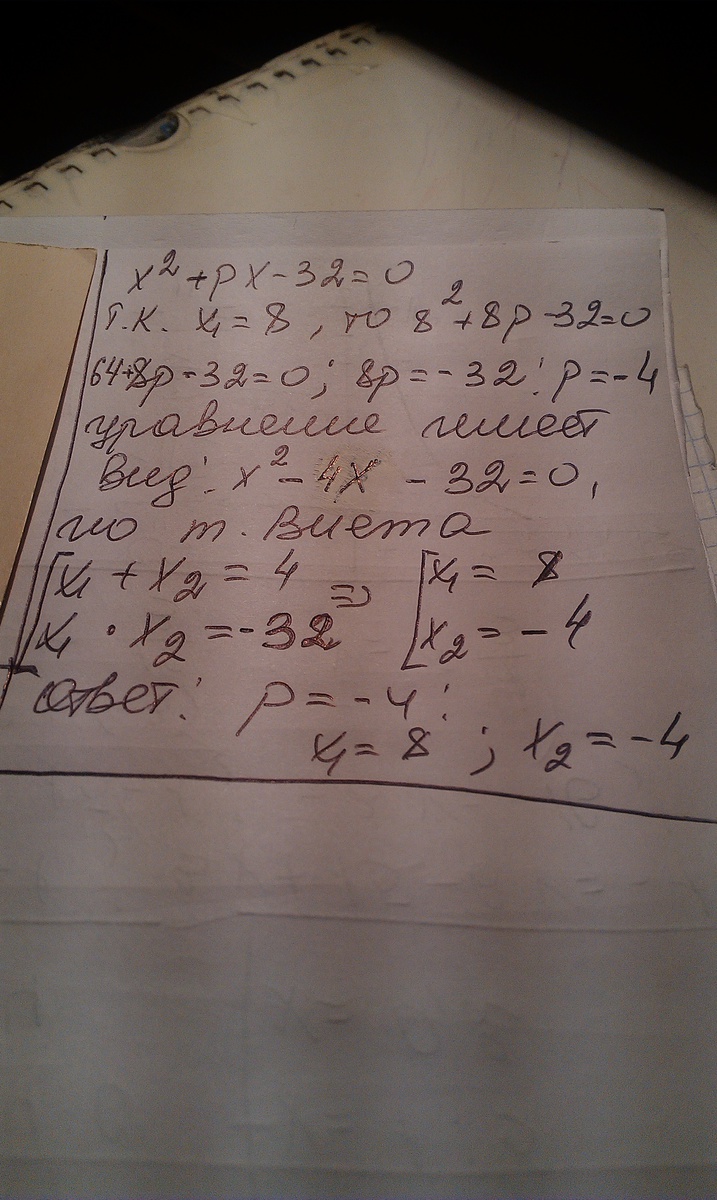 x² + px - 32 = 0
т.к. x₁ = 8, то 8² + 8p - 32 = 0
64 + 8p - 32 = 0; 8p = -32; p = -4
уравнение имеет
вид: x² - 4x - 32 = 0,
по т. Виета
[x₁ + x₂ = 4 => [x₁ = 8
x₁ · x₂ = -32 x₂ = -4
ответ: p = -4;
x₁ = 8; x₂ = -4